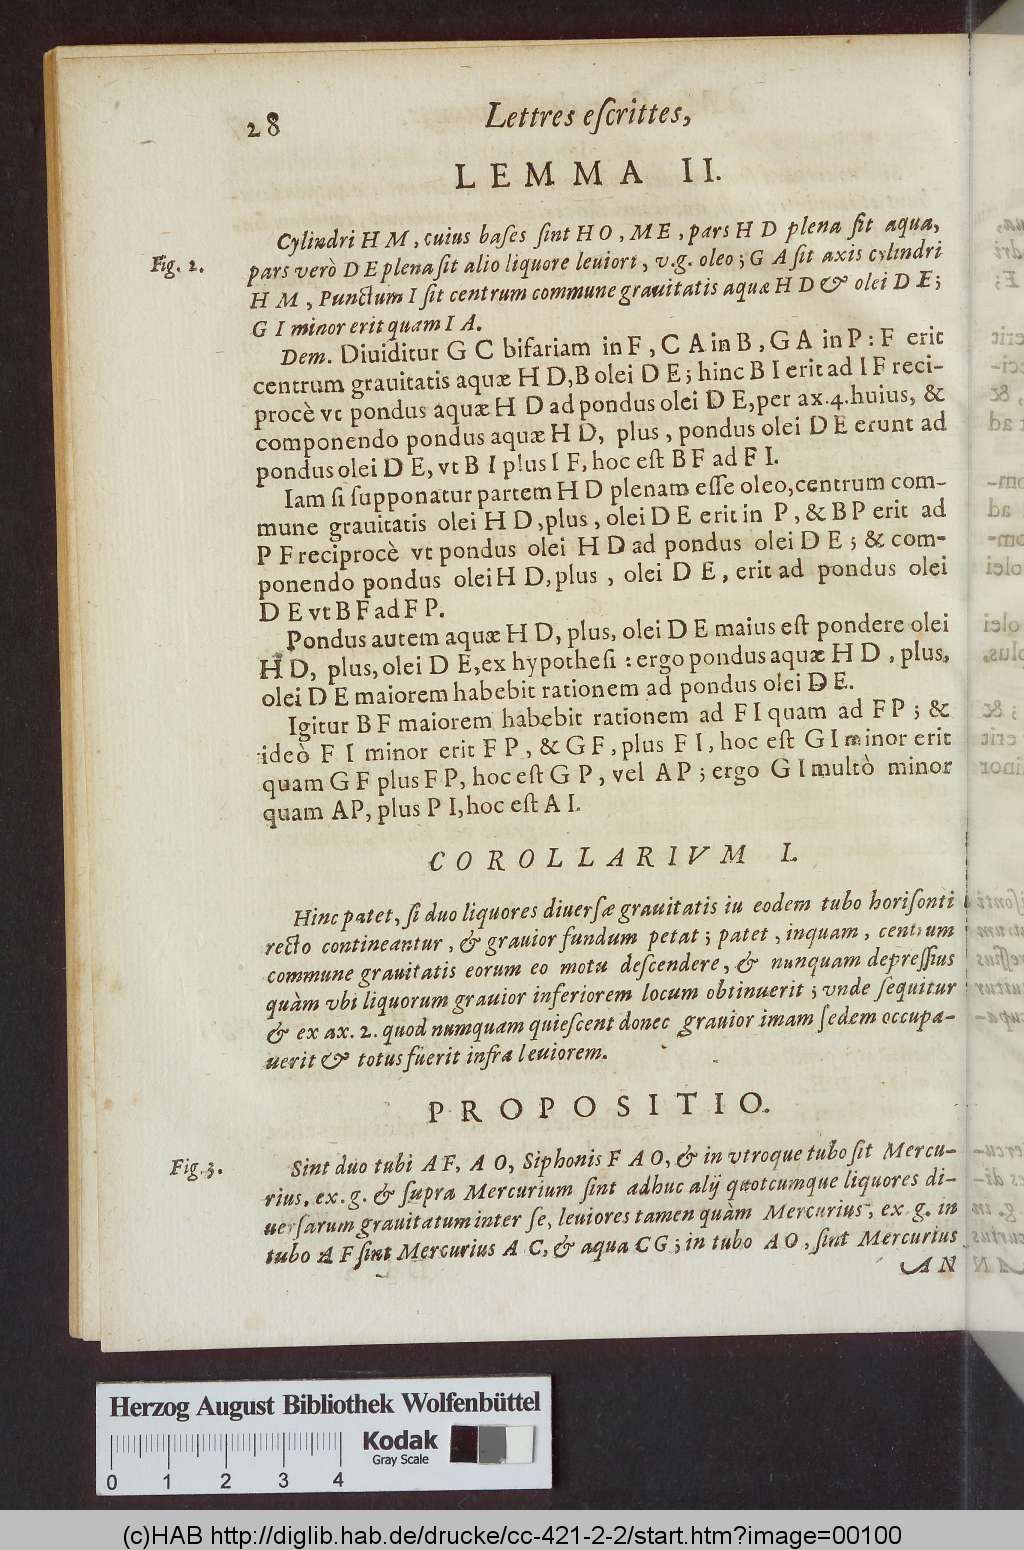 28
Lettres eſcrittes,
LEMMA II.
Fig. 2.
Cylindri H M, cuius baſes ſint H O, M E, pars H D plena ſit aqua,
pars verò D E plena ſit alio liquore leuiori, v.g. oleo; G A ſit axis cylindri
H M, Punctum I ſit centrum commune grauitatis aquæ H D & olei D E;
G I minor erit quam I A.
Dem. Diuiditur G C bifariam in F, C A in B, G A in P: F erit
centrum grauitatis aquæ H D, B olei D E; hinc B I erit ad I F reci-
procè vt pondus aquæ H D ad pondus olei D E, per ax. 4. huius, &
componendo pondus aquæ H D, plus, pondus olei D E erunt ad
pondus olei D E, vt B I plus I F, hoc eſt B F ad F I.
Iam ſi ſupponatur partem H D plenam eſſe oleo, centrum com-
mune grauitatis olei H D, plus, olei D E erit in P, & B P erit ad
P F reciprocè vt pondus olei H D ad pondus olei D E; & com-
ponendo pondus olei H D, plus, olei D E, erit ad pondus olei
D E vt B F ad F P.
Pondus autem aquæ H D, plus, olei D E maius eſt pondere olei
H D, plus, olei D E, ex hypotheſi: ergo pondus aquæ H D, plus,
olei D E maiorem habebit rationem ad pondus olei D E.
Igitur B F maiorem habebit rationem ad F I quam ad F P; &
ideò F I minor erit F P, & G F, plus F I, hoc eſt G I minor erit
quam G F plus F P, hoc eſt G P, vel A P; ergo G I multò minor
quam A P, plus P I, hoc eſt A I.
COROLLARIVM I.
Hinc patet, ſi duo liquores diuerſæ grauitatis iu eodem tubo horiſonti
recto contineantur, & grauior fundum petat; patet, inquam, centrum
commune grauitatis eorum eo motu deſcendere, & nunquam depreſſius
quàm vbi liquorum grauior inferiorem locum obtinuerit; vnde ſequitur
& ex ax. 2. quod numquam quieſcent donec grauior imam ſedem occupa-
uerit & totus fuerit infra leuiorem.
PROPOSITIO.
Fig. 3.
Sint duo tubi A F, A O, Siphonis F A O, & in vtroque tubo ſit Mercu-
rius, ex. g. & ſupra Mercurium ſint adhuc alij quotcumque liquores di-
uerſarum grauitatum inter ſe, leuiores tamen quàm Mercurius, ex g. in
tubo A F ſint Mercurius A C, & aqua C G; in tubo A O, ſint Mercurius
A N
Herzog August Bibliothek Wolfenbüttel
Kodak
Gray Scale
0 1 2 3 4
(c)HAB http://diglib.hab.de/drucke/cc-421-2-2/start.htm?image=00100